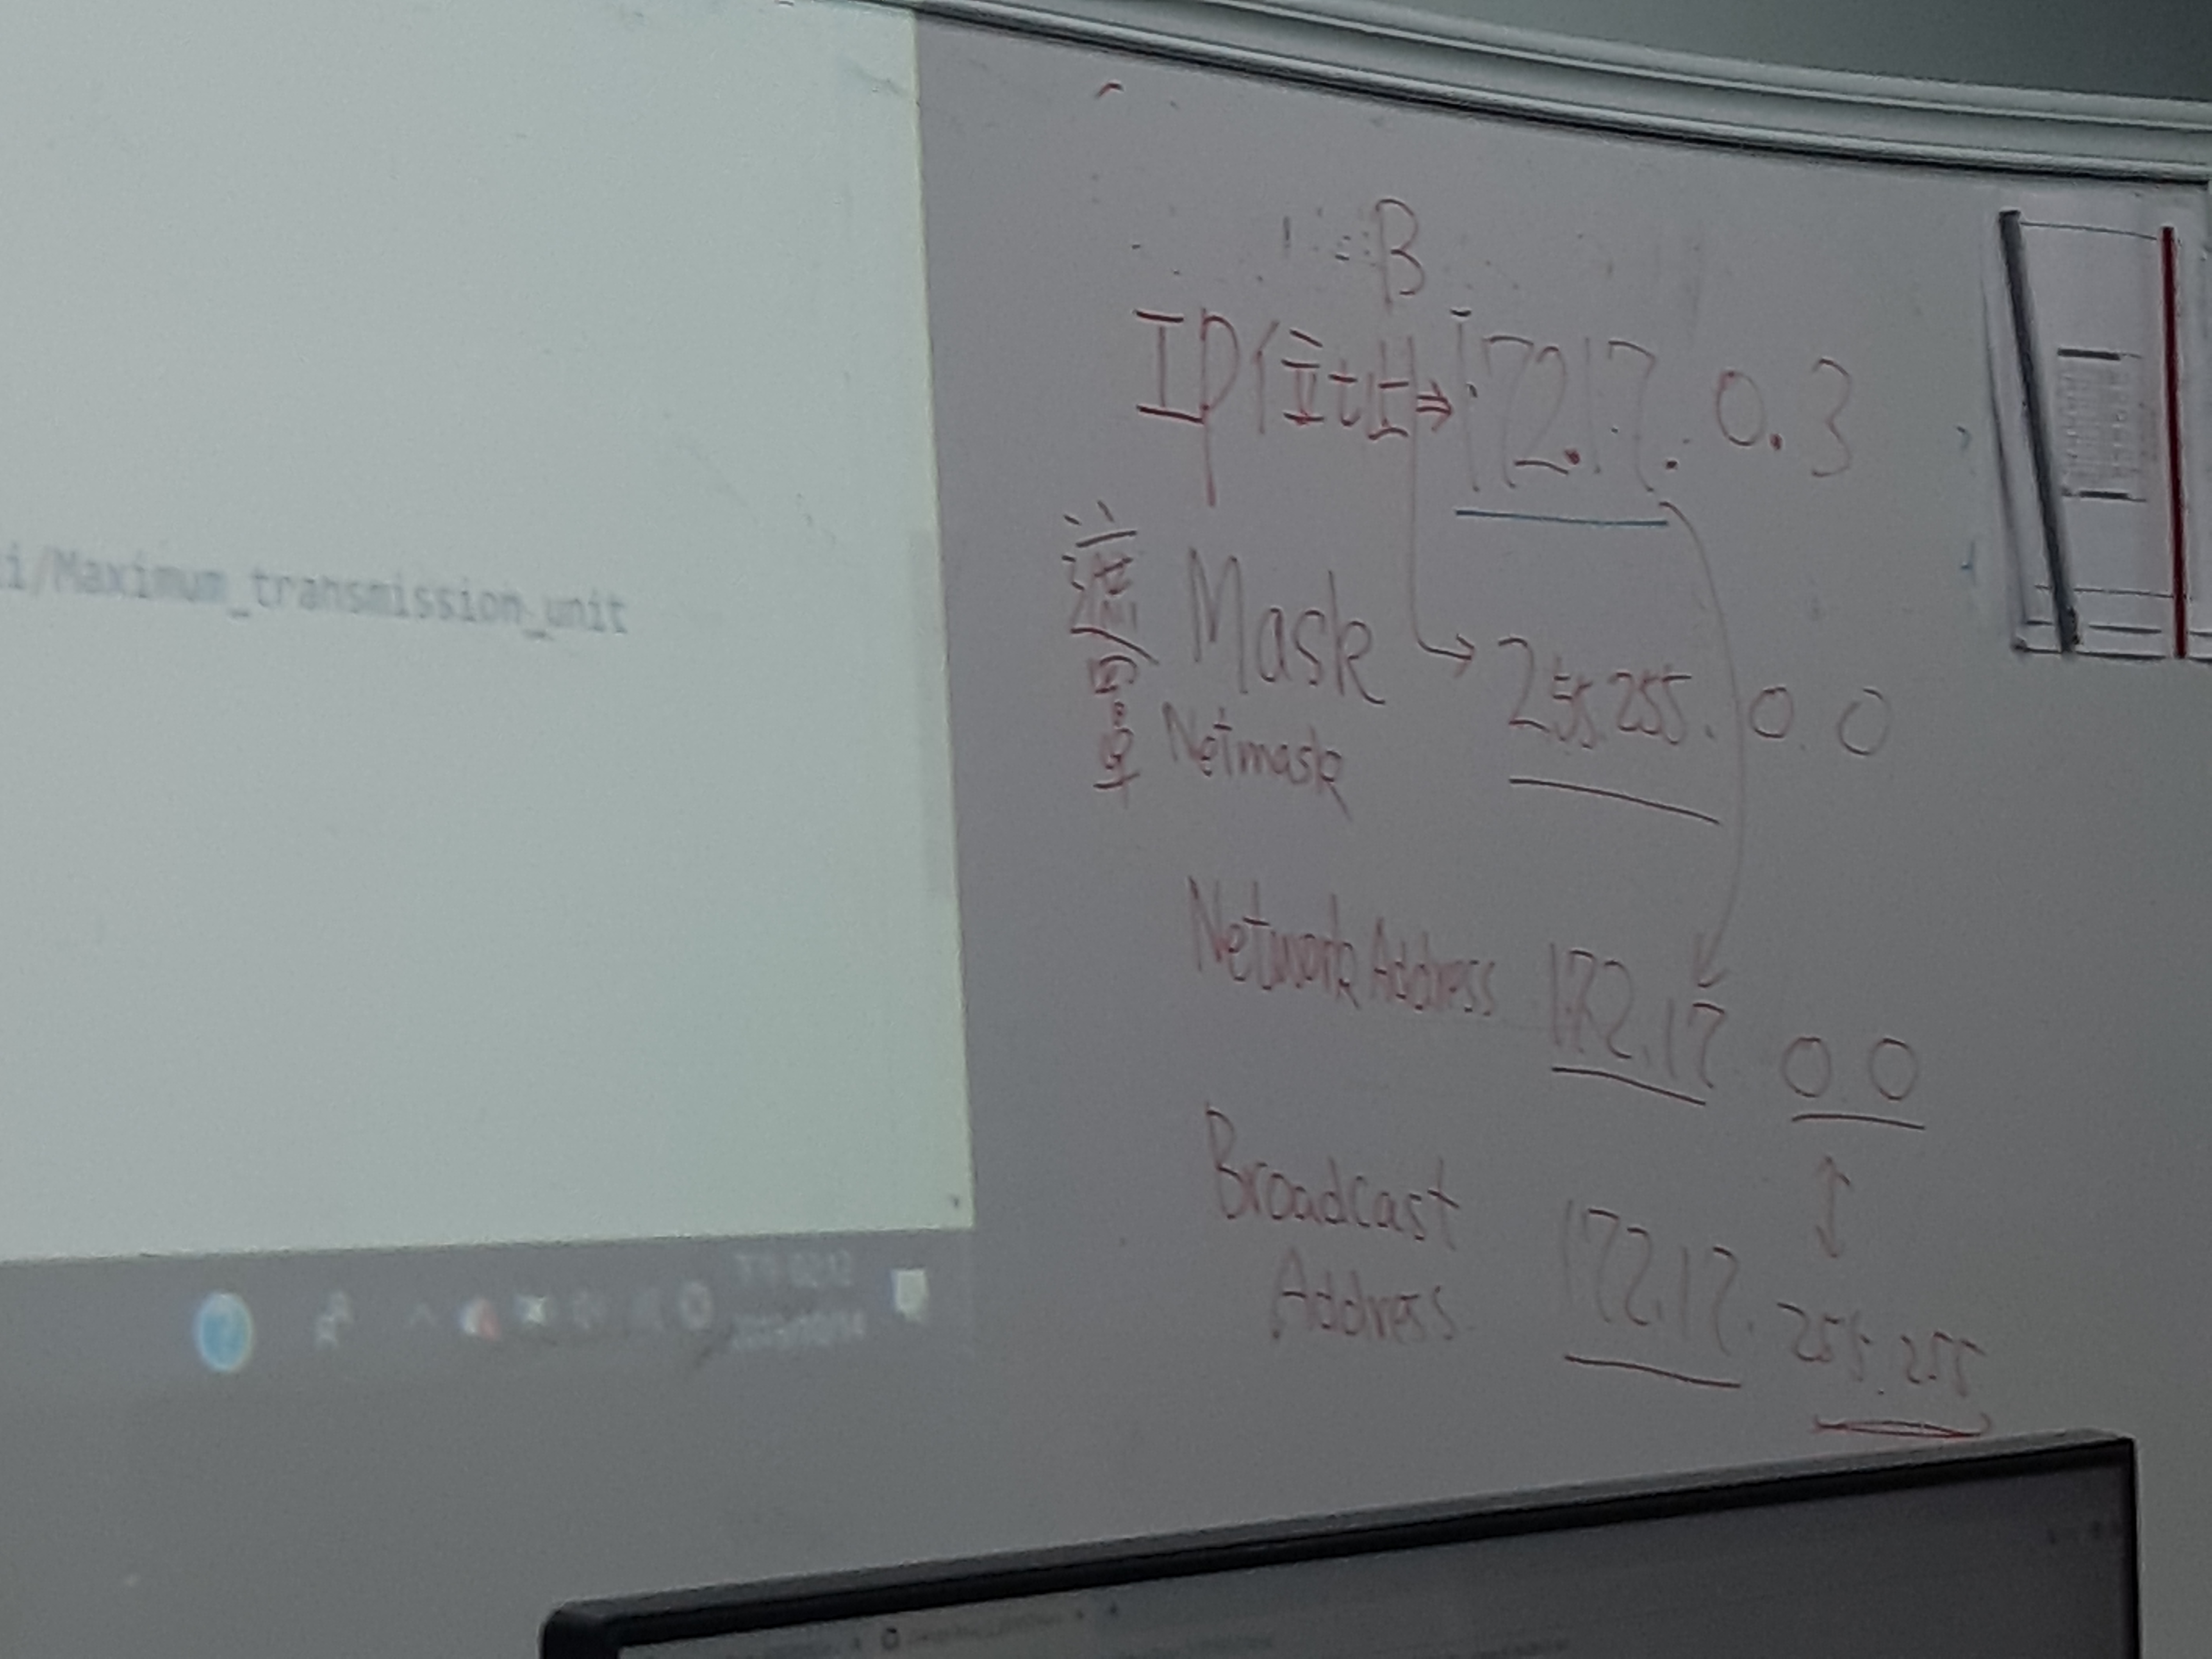 i/Maximum_transmission_unit
B
IP位址⇒172.17.0.3
遮罩
Mask → 255.255.0.0
Netmask
Network Address 172.17 0.0
Broadcast
Address 172.17.255.255